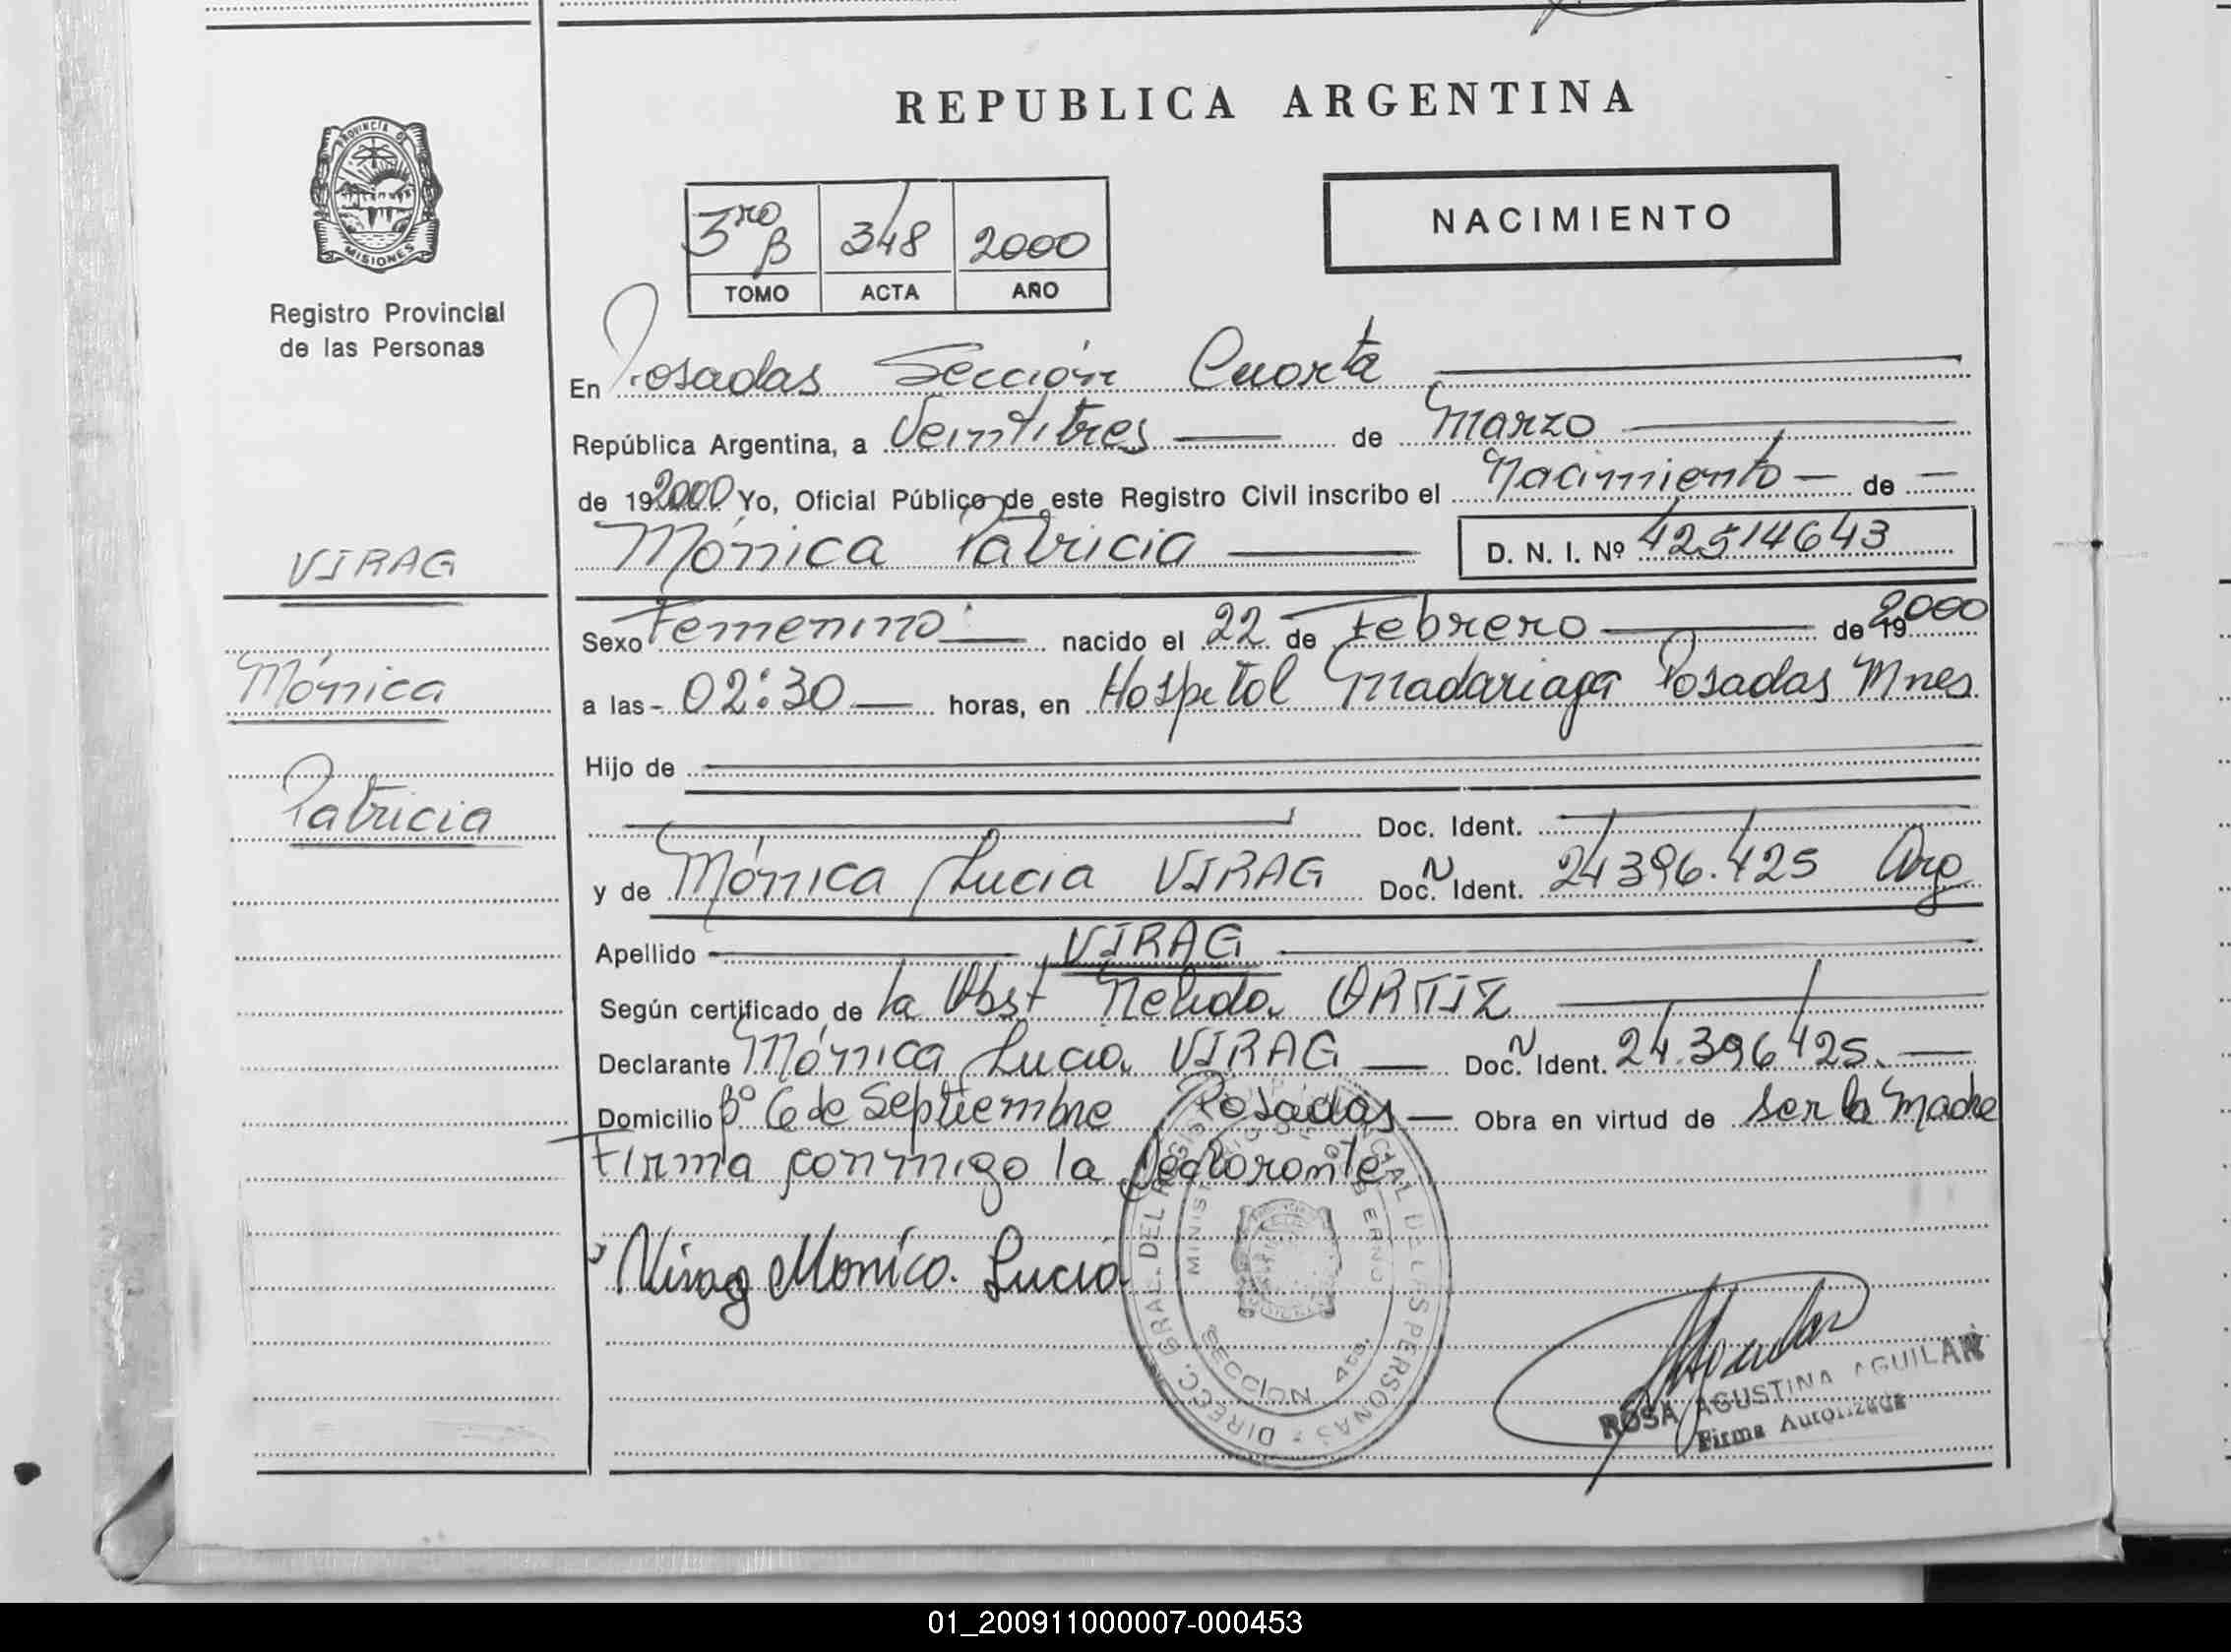 REPUBLICA ARGENTINA
PROVINCIA DE
MISIONES
Registro Provincial
de las Personas
3ro B 348 2000
TOMO ACTA AÑO
NACIMIENTO
En Posadas Sección Cuarta
República Argentina, a Veintitres de Marzo
de 192000 Yo, Oficial Público de este Registro Civil inscribo el Nacimiento de
Mónica Patricia D. N. I. Nº 42514643
VIRAG
Mónica
Patricia
Sexo Femenino nacido el 22 de Febrero de 19 2000
a las 02:30 horas, en Hospital Madariaga Posadas Mnes
Hijo de
Doc. Ident.
y de Mónica Lucia VIRAG Doc. N Ident. 24396.425 Arg
Apellido VIRAG
Según certificado de la Obst Nelida ORTIZ
Declarante Mónica Lucia VIRAG Doc. N Ident. 24.396425.
Domicilio Bº 6 de Septiembre Posadas Obra en virtud de ser la Madre
Firma conmigo la Declarante
Virag Monica Lucia
DIRECC. GRAL. DEL REGISTRO PROVINCIAL DE LAS PERSONAS
MINISTERIO DE GOBIERNO
SECCION 4ta.
ROSA AGUSTINA AGUILAR
Firma Autorizada
01_200911000007-000453